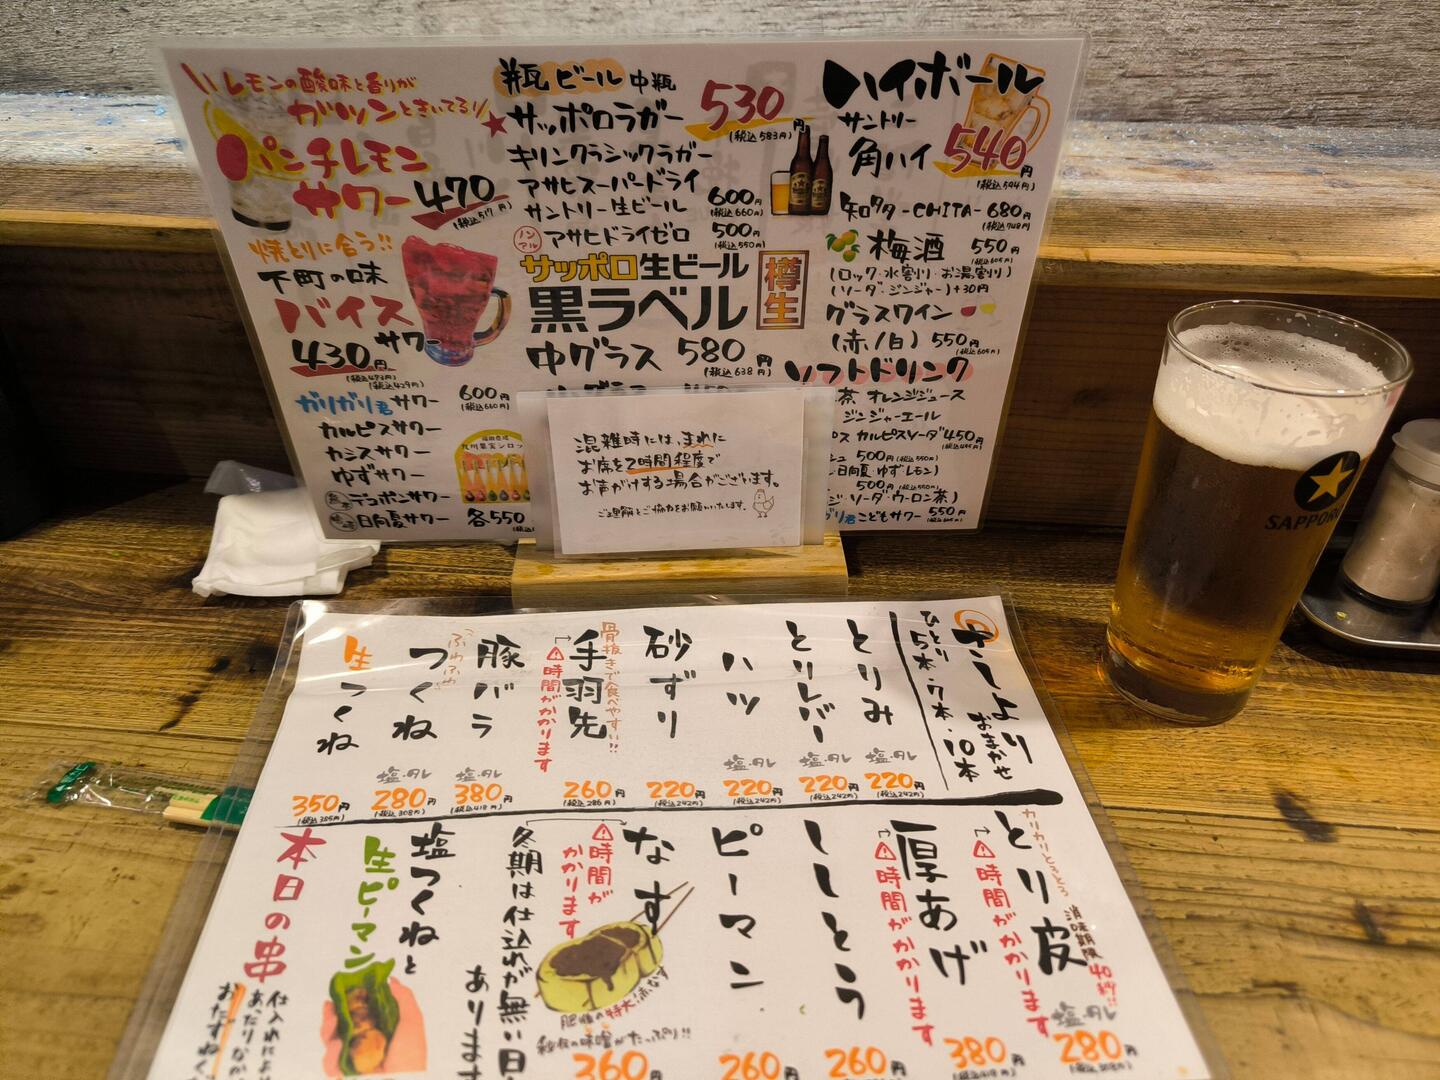 \\レモンの酸味と香りが
ガツンときいてる!/
パンチレモン
サワー 470円
(税込517円)
焼とりに合う!!
下町の味
バイス
サワー
430円
(税込473円)
(税込429円)
ガリガリ君サワー 600円
(税込660円)
カルピスサワー
カシスサワー
ゆずサワー
デコポンサワー
日向夏サワー 各550
(税込
九州果実シロッ
瓶ビール 中瓶
★サッポロラガー 530円
(税込583円)
キリンクラシックラガー
アサヒスーパードライ
サントリー生ビール 600円
(税込660円)
ノンアル アサヒドライゼロ 500円
(税込550円)
サッポロ生ビール
黒ラベル 樽生
中グラス 580円
(税込638円)
ハイボール
サントリー
角ハイ 540円
(税込594円)
知多 -CHITA- 680円
(税込748円)
梅酒 550円
(税込605円)
(ロック・水割り・お湯割り)
(ソーダ・ジンジャー)+30円
グラスワイン
(赤/白) 550円
(税込605円)
ソフトドリンク
茶 オレンジジュース
ジンジャーエール
ピス カルピスソーダ 450円
(税込495円)
500円(税込550円)
・日向夏・ゆず・レモン)
500円(税込550円)
ジ・ソーダ・ウーロン茶)
ガリ君こどもサワー 550円
(税込605円)
混雑時には、まれに
お席を2時間程度で
お声がけする場合がございます。
ご理解とご協力をお願いいたします。
SAPPORO
さしより
おまかせ
ひとり5本・7本・10本
とりみ
塩・タレ
220円
(税込242円)
とりレバー
塩・タレ
220円
(税込242円)
ハツ
塩・タレ
220円
(税込242円)
砂ずり
220円
(税込242円)
骨抜きで食べやすい!!
手羽先
時間がかかります
260円
(税込286円)
豚バラ
塩・タレ
380円
(税込418円)
ふわふわ
つくね
塩・タレ
280円
(税込308円)
生つくね
350円
(税込385円)
カリカリとろとろ
とり皮
消味期限40秒!!
時間がかかります
塩・タレ
280円
(税込308円)
厚あげ
時間がかかります
380円
(税込418円)
ししとう
260円
ピーマン
260円
なす
時間がかかります
肥後の特大!赤なす
秘伝の味噌がたっぷり!!
360円
冬期は仕込れが無い日
あります
塩つくねと
生ピーマン
本日の串
仕入れによ
あったりなか
おたずねく